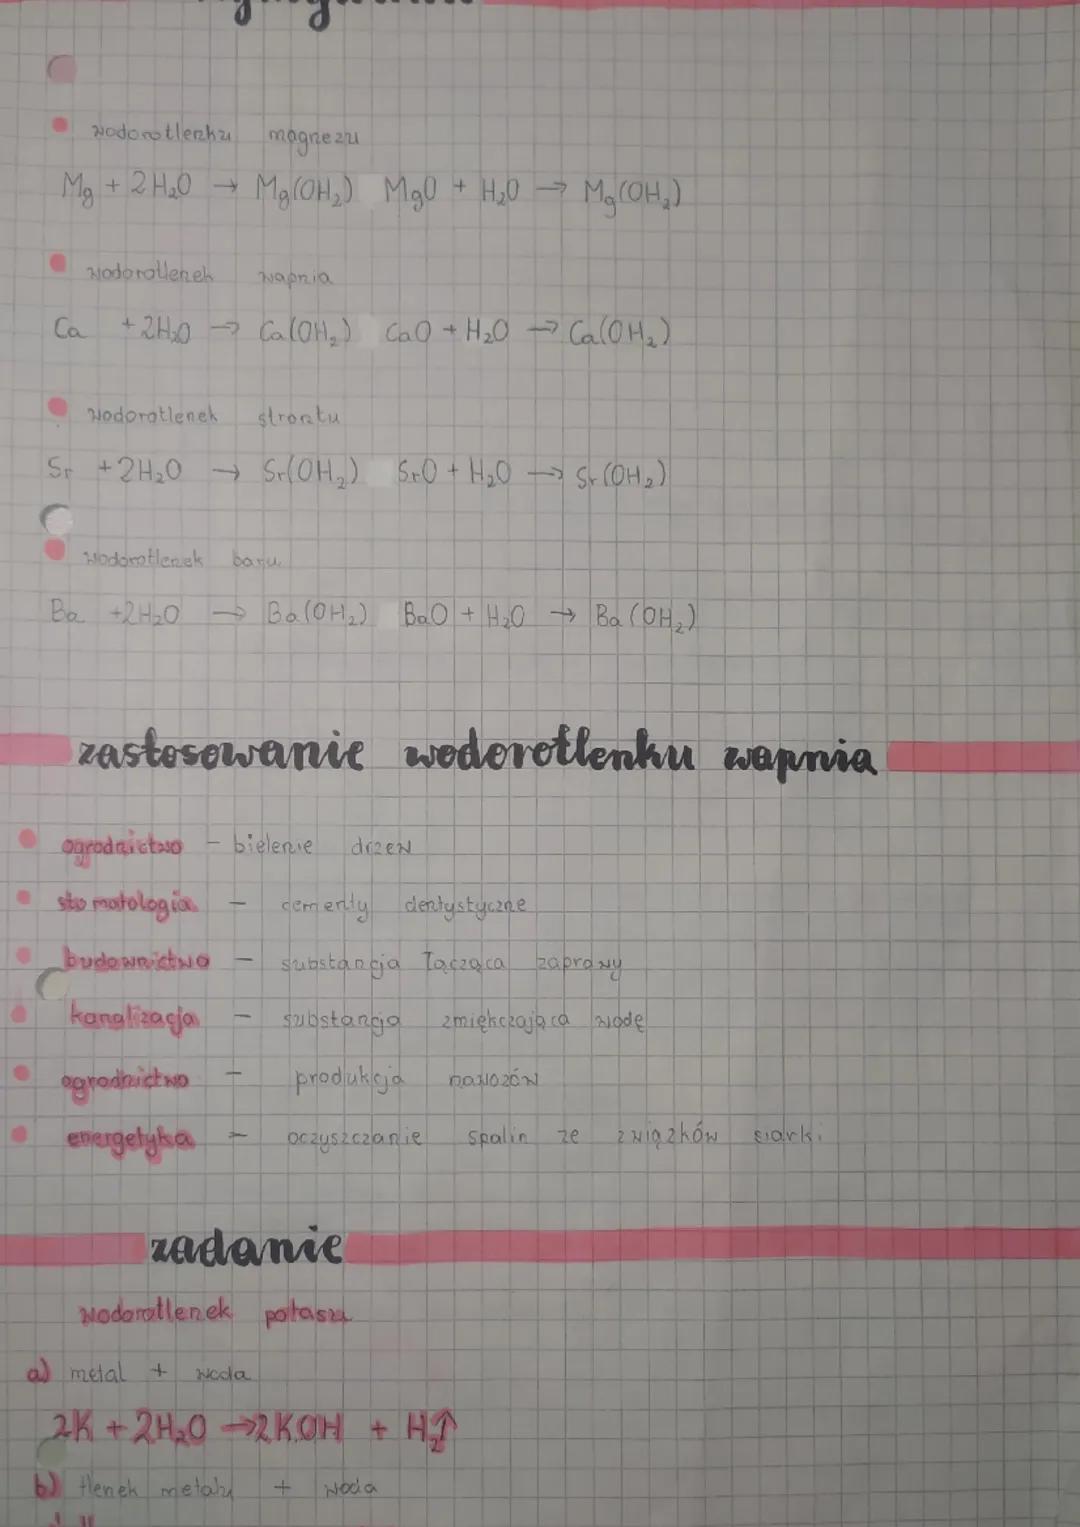 wodorotlenku magnezu
Mg + 2H₂O → Mg(OH₂) MgO + H₂O → Mg(OH₂)
wodorotlenek wapnia
Ca + 2H₂O → Ca(OH₂) CaO + H₂O → Ca(OH₂)
wodorotlenek strontu
Sr + 2H₂O → Sr(OH₂) SrO + H₂O → Sr(OH₂)
wodorotlenek baru
Ba + 2H₂O → Ba(OH₂) BaO + H₂O → Ba(OH₂)
zastosowanie wodorotlenku wapnia
ogrodnictwo - bielenie drzew
stomatologia - cementy dentystyczne
budownictwo - substancja łącząca zaprawy
kanalizacja - substancja zmiękczająca wodę
ogrodnictwo - produkcja nawozów
energetyka - oczyszczanie spalin ze związków siarki
zadanie
wodorotlenek potasu
a) metal + woda
2K + 2H₂O → 2KOH + H₂↑
b) tlenek metalu + woda